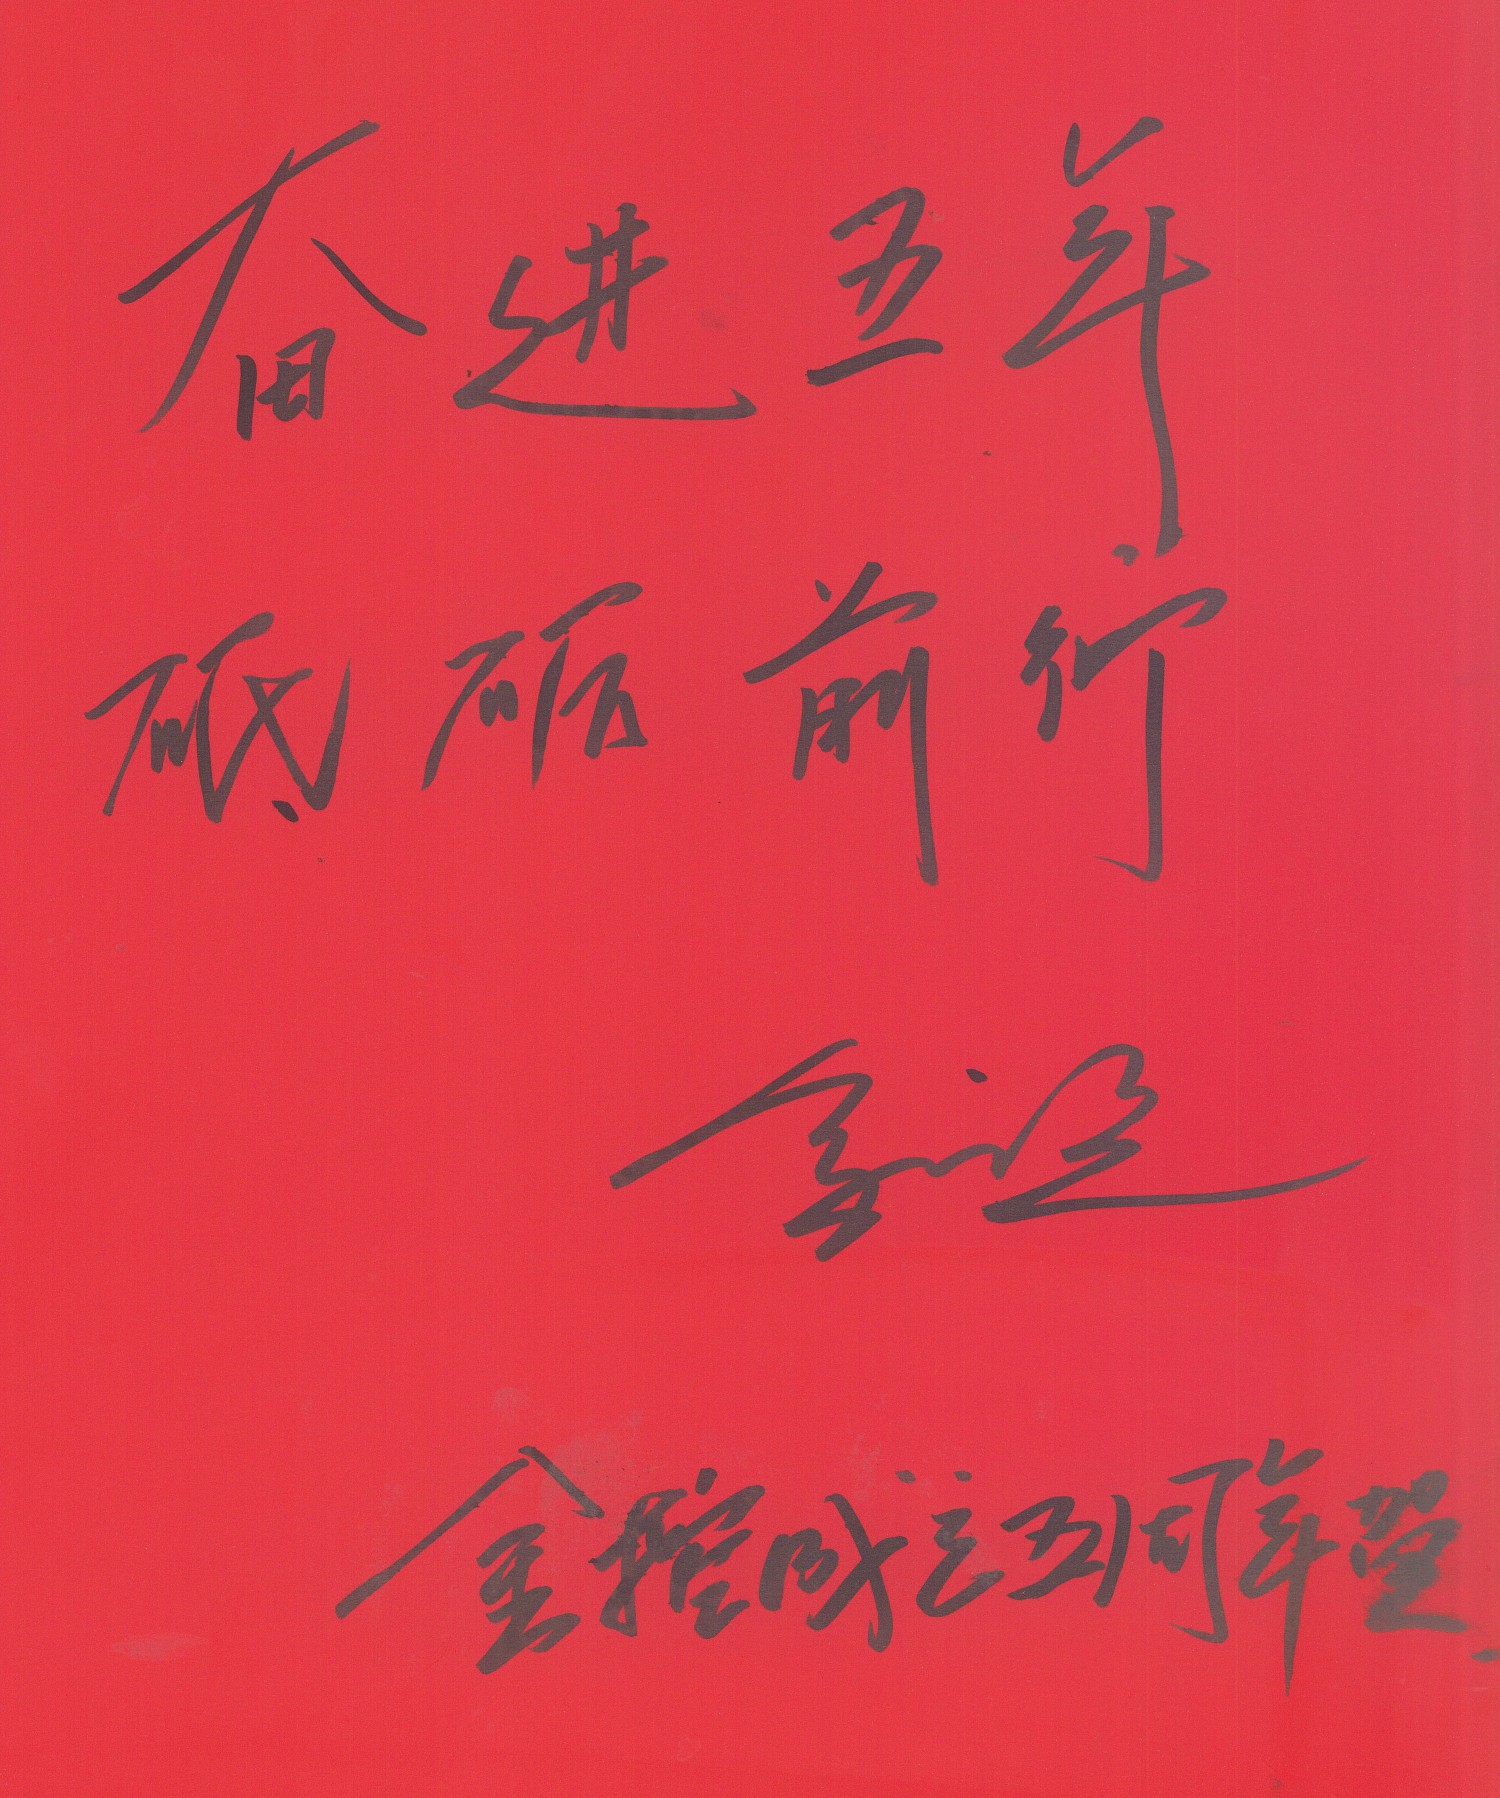 奋进五年
砥砺前行
金控成立五周年贺